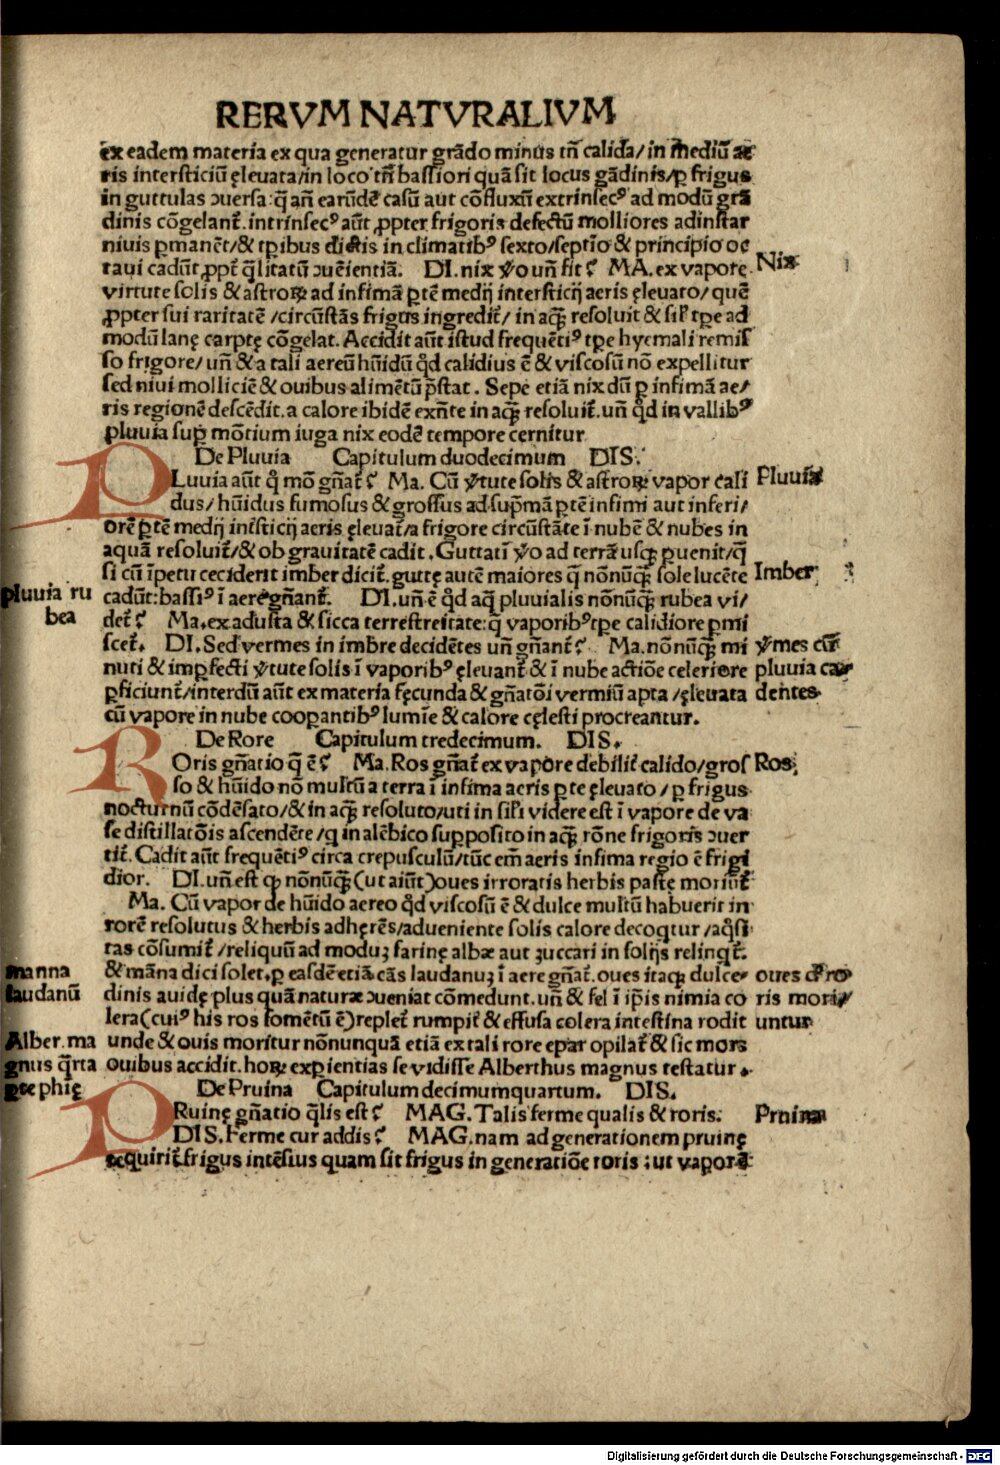 RERVM NATVRALIVM
ex eadem materia ex qua generatur grãdo minus tñ calida/in mediũ ae
ris intersticiũ ęleuata/in loco tñ bassiori quã sit locus gãdinis/ꝑ frigus
in guttulas ɔuersa:q̃ añ earũdẽ casũ aut cõfluxũ extrinsecꝰ ad modũ grã
dinis cõgelant̃. intrinsecꝰ aũt ꝓpter frigoris defectũ molliores adinstar
niuis ꝑmanẽt/& tꝑibus dictis in climatibꝰ sexto/septĩo & principio oc
taui cadũt ꝓpt̃ q̃litatũ ɔueĩentiã. DI. nix ꝟo uñ fit? MA. ex vapore
virtute solis & astroꝝ ad infimã ꝑtẽ medij intersticij aeris ęleuato/quẽ
ꝓpter sui raritatẽ/circũstãs frigus ingredit̃/in aqꝫ resoluit & sil’ tꝑe ad
modũ lanę carptę cõgelat. Accidit aũt istud frequẽtiꝰ tꝑe hyemali remis
so frigore/uñ & a tali aereũ hũidũ qd̃ calidius ẽ & viscosũ nõ expellitur
sed niui molliciẽ & ouibus alimẽtũ p̃stat. Sepe etiã nix dũ ꝑ infimã ae/
ris regionẽ descẽdit. a calore ibidẽ exñte in aqꝫ resoluit̃. uñ qd̃ in vallibꝰ
pluuia suꝑ mõtium iuga nix eodẽ tempore cernitur
De Pluuia Capitulum duodecimum DIS.
PLuuia aũt q̃ mõ gñat̃? Ma. Cũ ꝟtute solis & astroꝝ vapor cali
dus/hũidus fumosus & grossus ad supmã ꝑtẽ infimi aut inferi/
orẽ ꝑtẽ medij inẽsticij aeris ęleuat̃/a frigore circũstãte ĩ nubẽ & nubes in
aquã resoluit̃/& ob grauitatẽ cadit. Guttatĩ ꝟo ad terrã usqꝫ ꝑuenit/q̃
si cũ ĩpetu ceciderit imber dicit̃. guttę autẽ maiores q̃ nõnũqꝫ sole lucẽte
cadũt: bassiꝰ ĩ aere gñant̃. DI. uñ ẽ qd̃ aq̃ pluuialis nõnũqꝫ rubea vi/
det̃? Ma. ex adusta & sicca terrestreitate: q̃ vaporibꝰ tꝑe calidiore ꝑmi
scet̃. DI. Sed vermes in imbre decidẽtes uñ gñant̃? Ma. nõnũqꝫ mi
nuti & imꝑfecti ꝟtute solis ĩ vaporibꝰ ęleuant̃ & ĩ nube actiõe celeriore
ꝑficiunt̃/interdũ aũt ex materia fęcunda & gñatõi vermiũ apta/ęleuata
cũ vapore in nube cooꝑantibꝰ lumĩe & calore cęlesti procreantur.
De Rore Capitulum tredecimum. DIS.
ROris gñatio q̃ ẽ? Ma. Ros gñat̃ ex vapore debilit̃ calido/gros
so & hũido nõ multũ a terra ĩ infima aeris ꝑte ęleuato/ꝑ frigus
nocturnũ cõdẽsato/& in aqꝫ resoluto/uti in sil’i videre est ĩ vapore de va
se distillatõis ascendẽte/q̃ in alẽbico supposito in aqꝫ rõne frigoris ɔuer
tit̃. Cadit aũt frequẽtiꝰ circa crepusculũ/tũc em̃ aeris infima regio ẽ frigi
dior. DI. uñ est ꝙ nõnũqꝫ (ut aiũt) oues irroratis herbis pastę moriũt̃
Ma. Cũ vapor de hũido aereo qd̃ viscosũ ẽ & dulce multũ habuerit in
rorẽ resolutus & herbis adhęrẽs/adueniente solis calore decoqtur/aq̃si
tas cõsumit̃/reliquũ ad moduꝫ farinę albæ aut ꝫuccari in folijs relinqt̃.
& mãna dici solet. ꝑ easdẽ etiã cãs laudanuꝫ ĩ aere gñat̃. oues itaqꝫ dulce
dinis auidę plus quã naturæ ɔueniat cõmedunt. uñ & fel ĩ ip̃is nimia co
lera (cuiꝰ his ros fomẽtũ ẽ) replet̃ rumpit̃ & effusa colera intestina rodit
unde & ouis moritur nõnunquã etiã ex tali rore epar opilat̃ & sic mors
ouibus accidit. hoꝝ exꝑientias se vidisse Alberthus magnus testatur.
De Pruina Capitulum decimumquartum. DIS.
PRuinę gñatio q̃lis est? MAG. Talis ferme qualis & roris.
DIS. Ferme cur addis? MAG. nam ad generationem pruinę
requirit̃ frigus intẽsius quam sit frigus in generatiõe roris; ut vapora
Nix
Pluuia
Imber
pluuia ru
bea
ꝟmes cũ
pluuia ca
dentes
Ros
manna
laudanũ
oues
ris mori/
untur
Alber. ma
gnus q̃rta
phię
Pruina
Digitalisierung gefördert durch die Deutsche Forschungsgemeinschaft - DFG